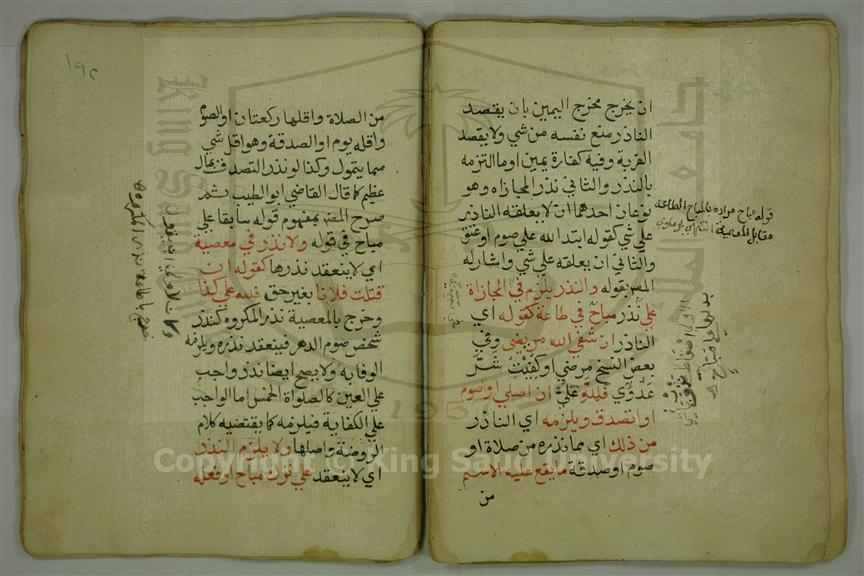 ان يخرج مخرج اليمين بان يقصد
الناذر منع نفسه من شي ولا يقصد
القربة وفيه كفارة يمين او ما التزمه
بالنذر والثاني نذر المجازاة وهو
نوعان احدهما ان لا يعلقه الناذر
علي شي كقوله ابتدا لله علي صوم او عتق
والثاني ان يعلقه علي شي واشار له
المص بقوله والنذر يلزم في المجازاة
علي نذر مباح في طاعة كقوله اي
الناذر ان شفي الله مريضي وفي
بعض النسخ مرضي او كفيت شر
عدوي فلله علي ان اصلي او صوم
او اتصدق ويلزمه اي الناذر
من ذلك اي مما نذره من صلاة او
صوم او صدقة ما يقع عليه الاسم
من
قوله مباح مراده بالمباح الطاعة
مقابل المعصية انتهي
١٩٢
من الصلاة واقلها ركعتان او الصوم
واقله يوم او الصدقة وهو اقل شي
مما يتمول وكذا لو نذر التصدق بمال
عظيم كما قال القاضي ابو الطيب ثم
صرح المص بمفهوم قوله سابقا علي
مباح في قوله ولا نذر في معصية
اي لا ينعقد نذرها كقوله ان
قتلت فلانا بغير حق فلله علي كذا
وخرج بالمعصية نذر المكروه كنذر
شخص صوم الدهر فينعقد نذره ويلزمه
الوفا به ولا يصح ايضا نذر واجب
علي العين كالصلواة الخمس اما الواجب
علي الكفاية فيلزمه كما يقتضيه كلام
الروضة واصلها ولا يلزم النذر
اي لا ينعقد علي ترك مباح او فعله
King Saud University
1957
Copyright © King Saud University